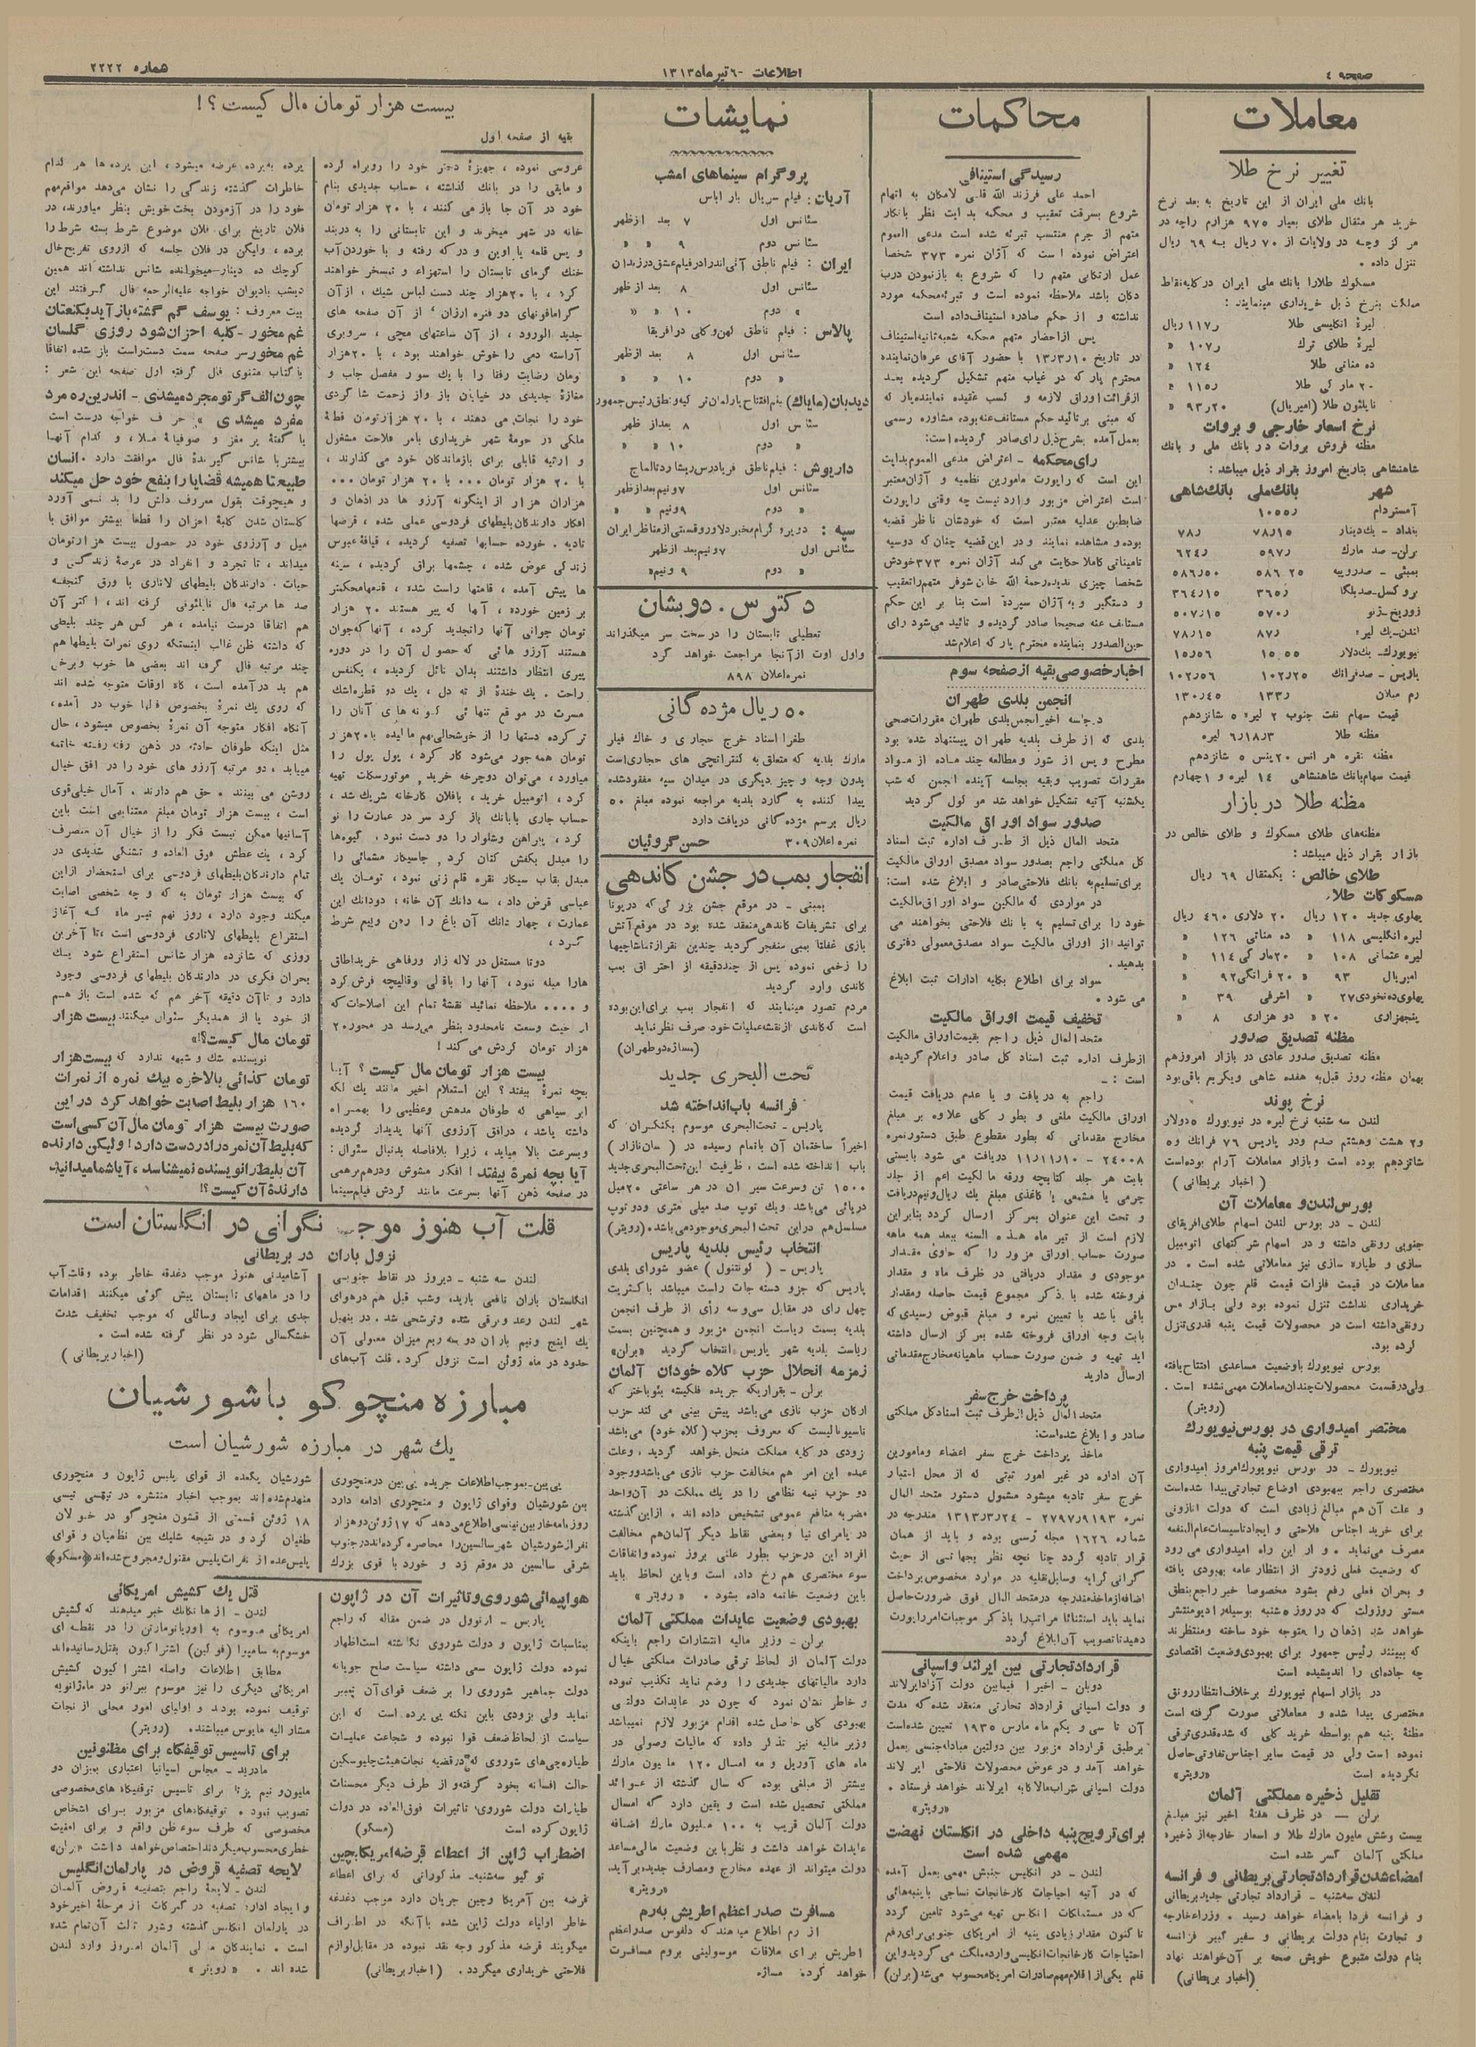 صفحه ٤
اطلاعات - ٦ تیر ماه ١٣١٣
شماره ٢٢٢٢
معاملات
تغییر نرخ طلا
بانك ملی ایران از این تاریخ به بعد نرخ
خرید هر مثقال طلای بعیار ٩٧٥ هزارم را چه در
مرکز و چه در ولایات از ٧٠ ریال به ٦٩ ریال
تنزل داده .
مسکوك طلا را بانك ملی ایران در کلیه نقاط
مملکت بنرخ ذیل خریداری مینماید :
لیرۀ انگلیسی طلا ١١٧ر ریال
لیرۀ طلای ترك ١٠٧ر «
ده مناتی طلا ١٢٤ر «
٢٠ مارکی طلا ١١٥ر «
ناپلئون طلا (امپریال) ٩٣ر٢٠ «
نرخ اسعار خارجی و بروات
مظنه فروش بروات در بانك ملی و بانك
شاهنشاهی بتاریخ امروز بقرار ذیل میباشد :
شهر بانك ملی بانك شاهی
آمستردام
بغداد - یك دینار ٧٨ر١٥ ٧٨ر
برلن - صد مارك ٥٩٧ر ٦٢٤ر
بمبئی - صد روپیه ٥٨٦ر٢٥ ٥٨٦ر٥٠
بروکسل - صد بلگا ٣٦٥ر ٣٦٤ر١٥
زوریخ - ژنو ٥٧٠ر ٥٠٧ر١٥
لندن - یك لیره ٨٧ر ٧٨ر١٥
نیویورك - یك دلار ١٥ر٥٥ ١٥ر٥٦
پاریس - صد فرانك ١٠٢ر٢٥ ١٠٢ر٥٦
رم میلان ١٣٣ر ١٣٠ر٤٥
قیمت سهام نفت جنوب ٢ لیره ٥ شانزدهم
مظنه طلا ٦ر١٨ر٣ لیره
مظنه نقره هر انس ٢٠ پنس ٥ شانزدهم
قیمت سهام بانك شاهنشاهی ١٤ لیره و ١ چهارم
مظنه طلا در بازار
مظنه‌های طلای مسکوك و طلای خالص در
بازار بقرار ذیل میباشد :
طلای خالص : یکمثقال ٦٩ ریال
مسکوکات طلا.
پهلوی جدید ١٢٠ ریال ٢٠ دلاری ٤٦٠ ریال
لیره انگلیسی ١١٨ « ده مناتی ١٢٦ «
لیره عثمانی ١٠٨ « ٢٠ مارکی ١١٤ «
امپریال ٩٣ « ٢٠ فرانگی ٩٢ «
پهلوی ده نخودی ٢٧ « اشرفی ٣٩ «
پنجهزاری ٢٠ « دو هزاری ٨ «
مظنه تصدیق صدور
مظنه تصدیق صدور عادی در بازار امروز هم
بهمان مظنه روز قبل به هفده شاهی و یکریم باقی بود
نرخ پوند
لندن سه شنبه نرخ لیره در نیویورك ٥ دولار
و ٢ هشت و هشتم صدم و در پاریس ٧٦ فرانك و ٥
شانزدهم بوده است و بازار معاملات آرام بوده است
( اخبار بریطانی )
بورس لندن و معاملات آن
لندن - در بورس لندن اسهام طلای افریقای
جنوبی رونقی داشته و در اسهام شرکتهای اتومبیل
سازی و طیاره سازی نیز معاملاتی شده است . در
معاملات در قیمت فلزات قیمت قلم چون چندان
خریداری نداشت تنزل نموده بود ولی بازار مس
رونقی داشته است در محصولات قیمت پنبه قدری تنزل
کرده بود.
بورس نیویورك با وضعیت مساعدی افتتاح یافته
ولی در قسمت محصولات چندان معاملات مهمی نشده است .
(رویتر)
مختصر امیدواری در بورس نیویورك
ترقی قیمت پنبه
نیویورك - در بورس نیویورك امروز امیدواری
مختصری راجع ببهبودی اوضاع تجارتی پیدا شده است
و علت آن هم مبالغ زیادی است که دولت اتازونی
برای خرید اجناس فلاحتی و ایجاد تاسیسات عام المنفعه
مصرف می‌نماید . و از این راه امیدواری می رود
که وضعیت فعلی زودتر از انتظار عامه بهبودی یافته
و بحران فعلی رفع بشود مخصوصا خبر راجع بنطق
مستر روزولت که در روز ٥ شنبه بوسیله رادیو منتشر
خواهد شد اذهان را متوجه خود ساخته و منتظرند
که ببینند رئیس جمهور برای بهبودی وضعیت اقتصادی
چه جاده‌ای را اندیشیده است
در بازار اسهام نیویورك بر خلاف انتظار رونق
مختصری پیدا شده و معاملاتی صورت گرفته است
مظنۀ پنبه هم بواسطه خرید کلی که شده قدری ترقی
نموده است ولی در قیمت سایر اجناس تفاوتی حاصل
نگردیده است «رویتر»
تقلیل ذخیره مملکتی آلمان
برلن — در ظرف هفتۀ اخیر نیز مبلغ
بیست و شش ملیون مارك طلا و اسعار خارجه از ذخیره
مملکتی آلمان کسر شده است
امضاء شدن قرارداد تجارتی بریطانی و فرانسه
لندن سه شنبه - قرارداد تجارتی جدید بریطانی
و فرانسه فردا بامضاء خواهد رسید . وزراء خارجه
و تجارت بنام دولت بریطانی و سفیر کبیر فرانسه
بنام دولت متبوع خویش صحه بر آن خواهند نهاد
(اخبار بریطانی)
محاکمات
رسیدگی استینافی
احمد علی فرزند الله قلی لامکان به اتهام
شروع بسرقت تعقیب و محکمه بدایت نظر بانکار
متهم از جرم منتسب تبرئه شده است مدعی العموم
اعتراض نموده است که آژان نمره ٣٧٣ شخصا
عمل ارتکابی متهم را که شروع به بازنمودن درب
دکان باشد ملاحظه نموده است و تبرئه محکمه مورد
نداشته و از حکم صادره استیناف داده است
پس از احضار متهم محکمه شعبه ثانیه استیناف
در تاریخ ١٣/٣/١٠ با حضور آقای عرفان نماینده
محترم پارکه در غیاب متهم تشکیل گردیده بعد
از قرائت اوراق لازمه و کسب عقیده نماینده پارکه
که مبنی بر تائید حکم مستأنف عنه بوده مشاوره رسمی
بعمل آمده بشرح ذیل رای صادر گردیده است:
رای محکمه - اعتراض مدعی العموم بدایت
این است که راپورت مامورین نظمیه و آژان معتبر
است اعتراض مزبور وارد نیست چه وقتی راپورت
ضابطین عدلیه معتبر است که خودشان ناظر قضیه
بوده و مشاهده نمایند و در این قضیه چنان که دوسیه
تامیناتی کاملا حکایت می‌کند آژان نمره ٣٧٣ خودش
شخصا چیزی ندیده رحمة الله خان شوفر متهم را تعقیب
و دستگیر و به آژان سپرده است بنا بر این حکم
مستانف عنه صحیحا صادر گردیده و تائید می‌شود رای
حین الصدور بنماینده محترم پارکه اعلام شد
اخبار خصوصی بقیه از صفحه سوم
انجمن بلدی طهران
در جلسه اخیر انجمن بلدی طهران مقررات صحی
بلدی که از طرف بلدیه طهران پیشنهاد شده بود
مطرح و پس از شور و مطالعه چند ماده از مواد
مقررات تصویب و بقیه بجلسه آینده انجمن که شب
یکشنبه آتیه تشکیل خواهد شد موکول گردید
صدور سواد اوراق مالکیت
متحد المال ذیل از طرف اداره ثبت اسناد
کل مملکتی راجع بصدور سواد مصدق اوراق مالکیت
برای تسلیم به بانك فلاحتی صادر و ابلاغ شده است:
در مواردی که مالکین سواد اوراق مالکیت
خود را برای تسلیم به بانك فلاحتی بخواهند می
توانید از اوراق مالکیت سواد مصدق معمولی دفتری
بدهید.
سواد برای اطلاع بکلیه ادارات ثبت ابلاغ
می شود .
تخفیف قیمت اوراق مالکیت
متحد المال ذیل راجع بقیمت اوراق مالکیت
از طرف اداره ثبت اسناد کل صادر و اعلام گردیده
است : -
راجع به دریافت و یا عدم دریافت قیمت
اوراق مالکیت ملغی و بطور کلی علاوه بر مبلغ
مخارج مقدماتی که بطور مقطوع طبق دستور نمره
٢٤٠٠٨ - ١١/١١/١٠ دریافت می شود بایستی
بابت هر جلد کتابچه ورقه مالکیت اعم از جلد
چرمی یا مشمعی یا کاغذی مبلغ یك ریال و نیم دریافت
و تحت این عنوان بمرکز ارسال گردد بنابراین
لازم است از تیر ماه هذه السنه ببعد همه ماهه
صورت حساب اوراق مزبور را که حاوی مقدار
موجودی و مقدار دریافتی در ظرف ماه و مقدار
فروخته شده با ذکر مجموع قیمت حاصله و مقدار
باقی باشد با تعیین نمره و مبلغ قبوض رسیدی که
بابت وجه اوراق فروخته شده بمرکز ارسال داشته
اید تهیه و ضمن صورت حساب ماهیانه مخارج مقدماتی
ارسال دارید
پرداخت خرج سفر
متحد المال ذیل از طرف ثبت اسناد کل مملکتی
صادر و ابلاغ شده است:
ماخذ پرداخت خرج سفر اعضاء و مامورین
آن اداره در غیر امور ثبتی که از محل اعتبار
خرج سفر تادیه میشود مشمول دستور متحد المال
نمره ٢٧٩٧/٩١٩٣ - ١٣١٣/٣/٢٤ مندرجه در
شماره ١٦٢٦ مجله رسمی بوده و باید از همان
قرار تادیه گردد چنانچه نظر بجهاتی از حیث
گرانی کرایه وسایل نقلیه در موارد مخصوص پرداخت
اضافه از ماخذ مندرجه در متحد المال فوق ضرورت حاصل
نماید باید استثنائا مراتب را با ذکر موجبات امر راپورت
دهید تا تصویب آن ابلاغ گردد
قرارداد تجارتی بین ایرلند و اسپانی
دوبلن - اخیرا فیمابین دولت آزاد ایرلاند
و دولت اسپانی قرارداد تجارتی منعقد شده که مدت
آن تا سی و یکم ماه مارس ١٩٣٥ تعیین شده است
بر طبق قرارداد مزبور بین دولتین مبادله جنسی بعمل
خواهد آمد و در عوض محصولات فلاحتی ایرلاند
دولت اسپانی شراب مالاکا به ایرلاند خواهد فرستاد .
«رویتر»
برای ترویج پنبه داخلی در انگلستان نهضت
مهمی شده است
لندن - در انگلیس جنبش مهمی بعمل آمده
که در آتیه احتیاجات کارخانجات نساجی با پنبه‌هائی
که در مستملکات انگلیس تهیه می‌شود تامین گردد
تا کنون مقدار زیادی پنبه از امریکای جنوبی برای رفع
احتیاجات کارخانجات انگلیسی وارد مملکت می‌گردید و این
قلم یکی از اقلام مهم صادرات امریکا محسوب می‌شد (برلن)
نمایشات
پروگرام سینماهای امشب
آریان : فیلم سریال بار اباس
سئانس اول ٧ بعد از ظهر
سئانس دوم ٩ « «
ایران : فیلم ناطق آنی اندرا در فیلم عشق در زندان
سئانس اول ٨ بعد از ظهر
« دوم ١٠ « «
پالاس : فیلم ناطق لهن و کلی در افریقا
سئانس اول ٨ بعد از ظهر
« دوم ١٠ « «
دیدبان (مایاك)
سئانس اول ٨ بعد از ظهر
« دوم ١٠ « «
داریوش : فیلم ناطق فریادرس ریشارد تالماج
سئانس اول ٧ و نیم بعد از ظهر
« دوم ٩ و نیم «
سپه : در پروگرام مخبر دلاور و قسمتی از مناظر ایران
سئانس اول ٧ و نیم بعد از ظهر
« دوم ٩ و نیم «
دکتر س. دوبشان
تعطیلی تابستان را در سخت سر میگذراند
و اول اوت از آنجا مراجعت خواهد کرد
نمره اعلان ٨٩٨
٥٠ ریال مژده گانی
طغرا اسناد خرج حجاری و خاك فیلر
مارك بلدیه که متعلق به کنتراتچی های حجاری است
بدون وجه و چیز دیگری در میدان سپه مفقود شده
پیدا کننده به گارد بلدیه مراجعه نموده مبلغ ٥٠
ریال برسم مژده گانی دریافت دارد
نمره اعلان ٣٠٩ حسن گروئیان
انفجار بمب در جشن گاندهی
بمبئی - در موقع جشن بزرگی که در پونا
برای تشریفات گاندهی منعقد شده بود در موقع آتش
بازی غفلتا بمبی منفجر گردید چندین نفر از تماشاچیها
را زخمی نموده پس از چند دقیقه از احتراق بمب
گاندی وارد گردید
مردم تصور مینمایند که انفجار بمب برای این بوده
است که گاندی از نقشه عملیات خود صرف نظر نماید
(مساژه دو طهران)
تحت البحری جدید
فرانسه بآب انداخته شد
پاریس - تحت‌البحری موسوم بکنکران که
اخیراً ساختمان آن باتمام رسیده در (سان نازار)
بآب انداخته شده است . ظرفیت این تحت‌البحری جدید
١٥٠٠ تن و سرعت سیر آن در هر ساعتی ٢٠ میل
دریائی می‌باشد و یك توپ صد میلی متری و دو توپ
مسلسل هم در این تحت البحری موجود می‌باشد . (رویتر)
انتخاب رئیس بلدیه پاریس
پاریس - ( لونتنول ) عضو شورای بلدی
پاریس که جزو دسته جات راست میباشد باکثریت
چهل رای در مقابل سی و سه رأی از طرف انجمن
بلدیه بسمت ریاست انجمن مزبور و همچنین بسمت
ریاست بلدیه شهر پاریس انتخاب گردید «برلن»
زمزمه انحلال حزب کلاه خودان آلمان
برلن - بقراریکه جریده فلکیشه بئوباختر که
ارکان حزب نازی می‌باشد پیش بینی می کند حزب
ناسیونالیست که معروف بحزب (کلاه خود) می‌باشد
بزودی در کلیه مملکت منحل خواهد گردید . و علت
عمده این امر هم مخالفت حزب نازی می‌باشد و وجود
دو حزب نیمه نظامی را در یك مملکت در آن واحد
مضر به منافع عمومی تشخیص داده اند . از این گذشته
در پامرای نیا و بعضی نقاط دیگر آلمان هم مخالفت
افراد این دو حزب بطور علنی بروز نموده و اتفاقات
سوء مختصری هم رخ داده است و باین لحاظ باید
باین وضعیت خاتمه داده بشود . «رویتر»
بهبودی وضعیت عایدات مملکتی آلمان
برلن - وزیر مالیه انتشارات راجع باینکه
دولت آلمان از لحاظ ترقی صادرات مملکتی خیال
دارد مالیاتهای جدیدی را وضع نماید تکذیب نموده
و خاطر نشان نمود که چون در عایدات دولتی
بهبودی کلی حاصل شده اقدام مزبور لازم نمیباشد
وزیر مالیه نیز تذکر داده که مالیات وصولی در
ماه های آوریل و مه امسال ١٢٠ ملیون مارك
بیشتر از مبلغی بوده که سال گذشته از عوائد
مملکتی تحصیل شده است و یقین دارد که امسال
دولت آلمان قریب به ١٠٠ ملیون مارك اضافه
عایدات خواهد داشت و نظر باین وضعیت مالی مساعد
دولت میتواند از عهده مخارج و مصارف جدیده برآید.
«رویتر»
مسافرت صدراعظم اطریش به رم
از رم اطلاع میدهند که دلفوس صدراعظم
اطریش برای ملاقات موسولینی بروم مسافرت
خواهد کرد. مساژه
بیست هزار تومان مال کیست ؟ !
بقیه از صفحه اول
عروسی نموده ، جهیزۀ دختر خود را روبراه کرده
و مابقی را در بانك گذاشته ، حساب جدیدی بنام
خود در آن جا باز می کنند ، با ٢٠ هزار تومان
خانه در شهر میخرند و این تابستانی را به دربند
و پس قلعه یا اوین و درکه رفته و با خوردن آب
خنك گرمای تابستان را استهزاء و تمسخر خواهند
کرد ، با ٢٠ هزار چند دست لباس شیك ، از آن
گرامافونهای دو فنره ارزان ؛ از آن صفحه های
جدید الورود ، از آن ساعتهای مچی ، سر و بری
آراسته دمی را خوش خواهند بود ، با ٢٠ هزار
تومان رضایت رفقا را با یك سور مفصل جلب و
مغازۀ جدیدی در خیابان باز و از زحمت شاگردی
خود را نجات می دهند ، با ٢٠ هزار تومان قطعۀ
ملکی در حومۀ شهر خریداری بامر فلاحت مشغول
و ارثیه قابلی برای بازماندگان خود می گذارند ،
با ٢٠ هزار تومان ٠٠٠ با ٢٠ هزار تومان ٠٠٠
هزاران هزار از اینگونه آرزو ها در اذهان و
افکار دارندگان بلیطهای فردوسی عملی شده ، قرضها
تادیه . خورده حسابها تصفیه گردیده ، قیافۀ عبوس
زندگی عوض شده ، چشمها براق گردیده ، سینه
ها پیش آمده ، قامتها راست شده ، قدمها محکمتر
بر زمین خورده ، آنها که پیر هستند ٢٠ هزار
تومان جوانی آنها را تجدید کرده ، آنها که جوان
هستند آرزو هائی که حصول آن را در دوره
پیری انتظار داشتند بدان نائل گردیده ، یکنفس
راحت . یك خندۀ از ته دل ، یك دو قطره اشك
مسرت در موقع تنهائی گونه های آنان را
تر کرده دستها را از خوشحالی بهم مالیده با ٢٠ هزار
تومان همه جور می‌شود کار کرد ، پول پول را
میاورد ، می‌توان دوچرخه خرید ، موتورسکلت تهیه
کرد ، اتومبیل خرید ، با فلان کارخانه شریك شد ،
حساب جاری با بانك باز کرد سر در عمارت را نو
کرد ، پیراهن و شلوار را دو دست نمود . گیوه‌ها
را مبدل بکفش کتان کرد ، جاسیگار مشمائی را
مبدل بقاب سیگار نقره قلم زنی نمود ، تومان یك
عباسی قرض داد ، سه دانك آن خانه ، دودانك این
عمارت ، چهار دانك آن باغ را رهن و بیع شرط
کرد ،
دوتا مستغل در لاله زار و رفاهی خرید اطاق
هارا مبله نمود ، آنها را با قالی و قالیچه فرش کرد
و ٠٠٠٠ ملاحظه نمائید نقشۀ تمام این اصلاحات که
از حیث وسعت نامحدود بنظر می‌رسد در محور ٢٠
هزار تومان گردش می‌کند !
بیست هزار تومان مال کیست ؟ آیا
بچه نمرۀ بیفتد ؟ این استعلام اخیر مانند یك لکه
ابر سیاهی که طوفان مدهش و عظیمی را بهمراه
داشته باشد ، در افق آرزوی آنها پدیدار گردیده
و بسرعت بالا میاید ، زیرا بلافاصله بدنبال سئوال :
آیا بچه نمرۀ بیفتد ؟ افکار مشوش و درهم برهمی
در صفحه ذهن آنها بسرعت مانند گردش فیلم سینما
پرده به پرده عرضه میشود ، این پرده ها هر کدام
خاطرات گذشته زندگی را نشان می‌دهد مواقع مهم
خود را در آزمودن بخت خویش بنظر میاورند ، در
فلان تاریخ برای فلان موضوع شرط بسته شرط را
برده ، ولیکن در فلان جلسه که ازروی تفریح خال
کوچك ده دینار میخوانده شانس نداشته اند همین
دیشب بادیوان خواجه علیه الرحمه فال گرفتند این
بیت معروف : یوسف گم گشته باز آید بکنعان
غم مخور - کلبه احزان شود روزی گلستان
غم مخور سر صفحه سمت دست راست باز شده اتفاقا
با کتاب مثنوی فال گرفته اول صفحه این شعر :
چون الف گر تو مجرد میشدی - اندرین ره مرد
مفرد میشدی
با گفتۀ پر مغز و صوفیانۀ ملا ، و کدام آنها
بیشتر با شانس گیرندۀ فال موافقت دارد . انسان
طبیعتا همیشه قضایا را بنفع خود حل میکند
و هیچوقت بقول معروف دلش را بد نمی آورد
گلستان شدن کلبۀ احزان را قطعا بیشتر موافق با
میل و آرزوی خود در حصول بیست هزار تومان
میداند ، تا تجرد و انفراد در عرصۀ زندگی و
حیات . دارندگان بلیطهای لاتاری با ورق گنجفه
صد ها مرتبه فال ناپلئونی گرفته اند ، اکثر آن
هم اتفاقا درست نیامده ، هر کس هر چند بلیطی
که داشته ظن غالب اینستکه روی نمرات بلیطها هم
چند مرتبه فال گرفته اند بعضی ها خوب و برخی
هم بد درآمده است ، گاه اوقات متوجه شده اند
که روی یك نمرۀ بخصوص فالها خوب در آمده ،
آنگاه افکار متوجه آن نمرۀ بخصوص میشود ، حال
مثل اینکه طوفان حادثه در ذهن رفته رفته خاتمه
میبابد ، دو مرتبه آرزو های خود را در افق خیال
روشن می بینند . حق هم دارند . آمال خیلی قوی
است ، بیست هزار تومان مبلغ معتنابهی است باین
آسانیها ممکن نیست فکر را از خیال آن منصرف
کرد ، یك عطش فوق العاده و تشنگی شدیدی در
تمام دارندگان بلیطهای فردوسی برای استحضار از این
که بیست هزار تومان به که و چه شخصی اصابت
میکند وجود دارد ، روز نهم تیر ماه که آغاز
استقراع بلیطهای لاتاری فردوسی است ، تا آخرین
روزی که شانزده هزار شانس استقراع شود یك
بحران فکری در دارندگان بلیطهای فردوسی وجود
دارد و تا آن دقیقه آخر هم که شده است باز هم
از خود یا از همدیگر سئوال میکنند بیست هزار
تومان مال کیست؟!»
نویسنده شك و شبهه ندارد که بیست هزار
تومان کذائی بالاخره بیك نمره از نمرات
١٦٠ هزار بلیط اصابت خواهد کرد در این
صورت بیست هزار تومان مال آن کسی است
که بلیط آن نمره را در دست دارد! ولیکن دارنده
آن بلیط را نویسنده نمیشناسد ، آیا شما میدانید
دارندۀ آن کیست ؟!
قلت آب هنوز موجب نگرانی در انگلستان است
نزول باران در بریطانی
لندن سه شنبه - دیروز در نقاط جنوبی
انگلستان باران نافعی بارید، و شب قبل هم در هوای
شهر لندن رعد و برقی شده و ترشحی شد . در بتهیل
یك اینچ و نیم باران دو سه ربع میزان معمولی آن
حدود در ماه ژوئن است نزول کرد . قلت آب‌های
آشامیدنی هنوز موجب دغدغه خاطر بوده و قلت آب
را در ماههای تابستان پیش گوئی میکنند اقدامات
جدی برای ایجاد وسائلی که موجب تخفیف شدت
خشکسالی شود در نظر گرفته شده است .
(اخبار بریطانی )
مبارزه منچوکو با شورشیان
یك شهر در مبارزه شورشیان است
پی‌پین - بموجب اطلاعات جریده پی‌پین در منچوری
بین شورشیان و قوای ژاپون و منچوری ادامه دارد
روزنامه خاربین نیسی اطلاع می‌دهد که ١٧ ژوئن دو هزار
نفر از شورشیان شهر سالسین را محاصره کرده اند در جنوب
شرقی سالسین در موقع زد و خورد با قوی بزرك
شورشیان یکعده از قوای پلیس ژاپون و منچوری
منهدم شده اند بموجب اخبار منتشره در تیقسی تیسی
١٨ ژوئن قسمتی از قشون منچوگو در خولان
طغیان کرده و در نتیجه شلیك بین نظامیان و قوای
پلیس عده از نفرات پلیس مقتول و مجروح شده‌اند «مسکو»
هواپیمائی شوروی و تاثیرات آن در ژاپون
پاریس - ارنوول در ضمن مقاله که راجع
بمناسبات ژاپون و دولت شوروی نگاشته است اظهار
نموده دولت ژاپون سعی داشته سیاست صلح جویانه
دولت جماهیر شوروی را بر ضعف قوای آن تعبیر
نماید ولی بزودی باین نکته پی برده است که این
سیاست از لحاظ ضعف قوا نبوده و شجاعت عملیات
طیاره‌چی های شوروی که در قضیه نجات هیئت چلیوسکین
حالت افسانه بخود گرفته و از طرف دیگر محسنات
طیارات دولت شوروی، تاثیرات فوق العاده در دولت
ژاپون کرده است (مسکو)
اضطراب ژاپن از اعطاء قرضه امریکا بچین
توکیو سه‌شنبه - مذکوراتی که برای اعطاء
قرضه بین آمریکا و چین جریان دارد موجب دغدغه
خاطر اولیاء دولت ژاپن شده با آنکه در اطراف
میگویند قرضه مذکور وجه نقد نبوده در مقابل لوازم
فلاحتی خریداری میگردد . (اخبار بریطانی)
قتل یك کشیش امریکائی
لندن - از هانکائو خبر میدهند که کشیش
امریکائی موسوم به اوریانومارتن را در نقطه‌ای
موسوم به سامیرا (فوکین) اشتراکیون بقتل رسانیده‌اند
مطابق اطلاعات واصله اشتراکیون کشیش
امریکائی دیگری را نیز موسوم ببرانو در ماه ژانویه
توقیف نموده بودند و اولیای امور محلی از نجات
مشار الیه مایوس میباشند. (رویتر)
برای تاسیس توقیفگاه برای مظنونین
مادرید - مجلس اسپانیا اعتباری بمیزان دو
ملیون و نیم پزتا برای تاسیس توقیفگاه‌های مخصوصی
تصویب نمود . توقیفگاه‌های مزبور برای اشخاص
مخصوصی که طرف سوء ظن واقع و برای امنیت
خطری محسوب میگردند اختصاص خواهد داشت «برلن»
لایحه تصفیه قروض در پارلمان انگلیس
لندن - لایحۀ راجع بتصفیۀ قروض آلمان
و ایجاد اداره تصفیه در گمرکات از مرحلۀ اخیر خود
در پارلمان انگلیس گذشته و شور ثالث آن تمام شده
است . نمایندگان مالی آلمان امروز وارد لندن
شده اند . « رویتر »